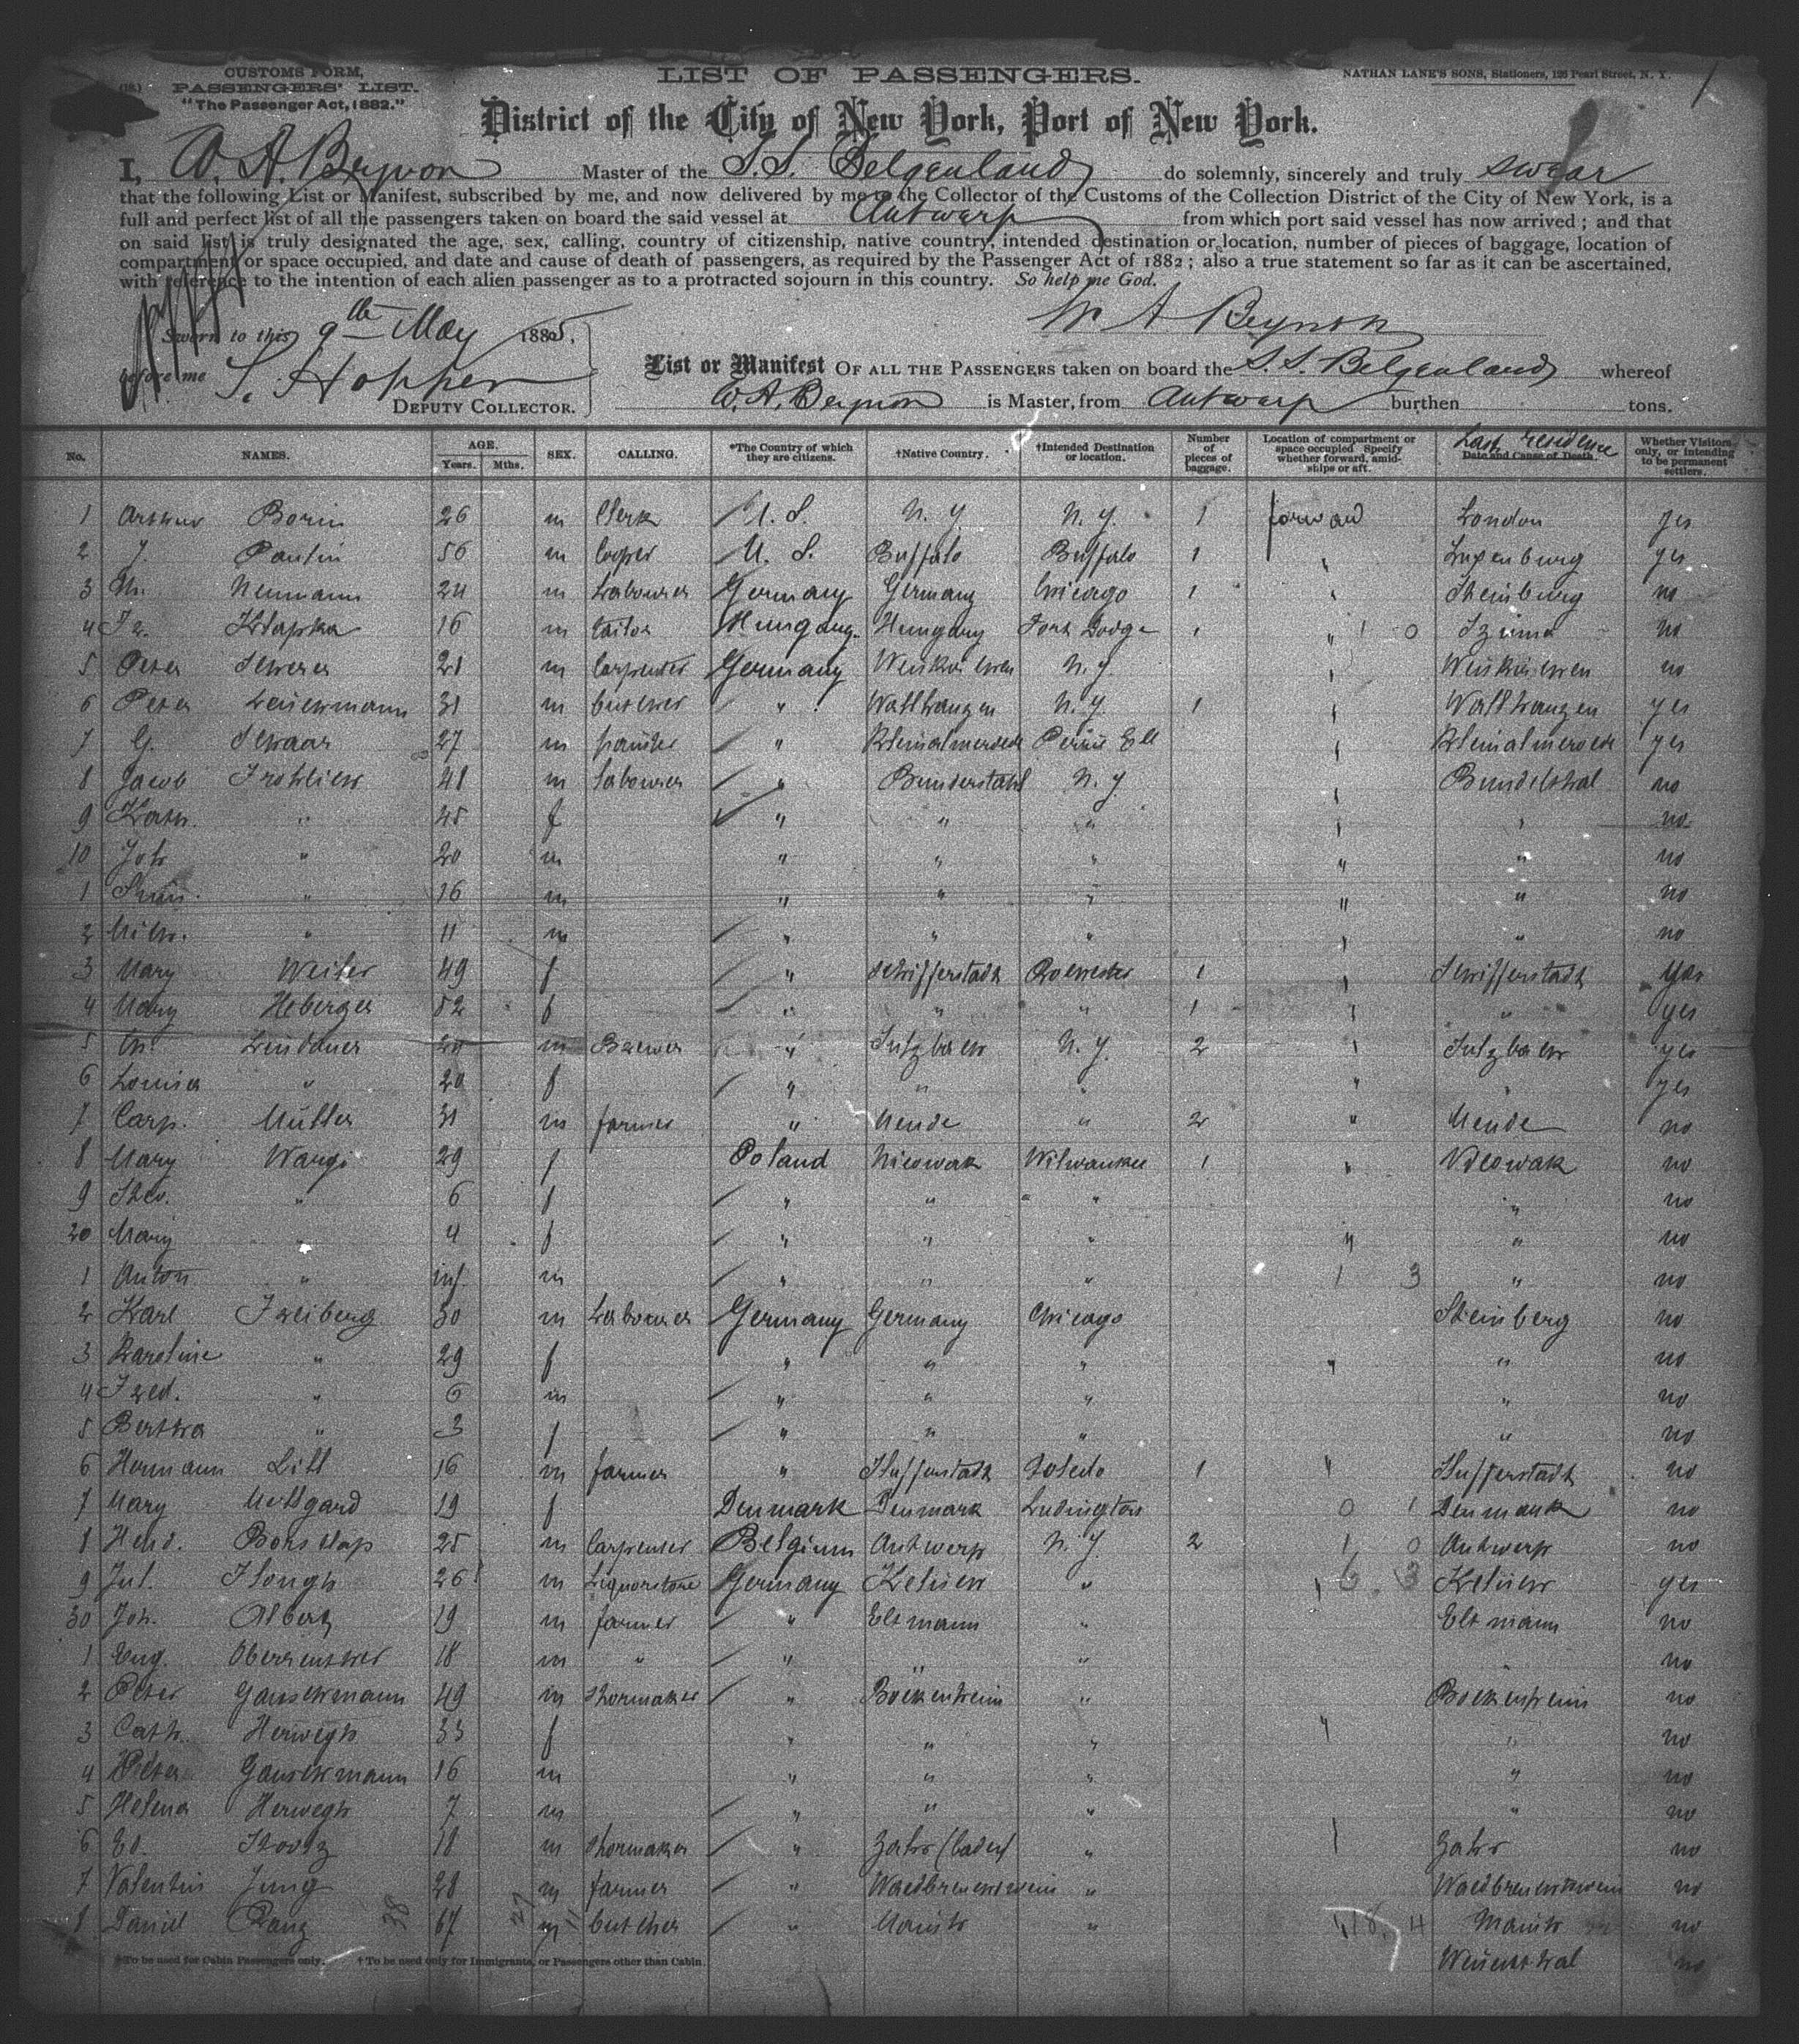 (18.)
CUSTOMS FORM,
PASSENGERS' LIST.
"The Passenger Act, 1882."
LIST OF PASSENGERS.
NATHAN LANE'S SONS, Stationers, 126 Pearl Street, N. Y.
District of the City of New York, Port of New York.
I, W. A. Beynon Master of the S.S. Belgenland do solemnly, sincerely and truly swear
that the following List or Manifest, subscribed by me, and now delivered by me to the Collector of the Customs of the Collection District of the City of New York, is a
full and perfect list of all the passengers taken on board the said vessel at Antwerp from which port said vessel has now arrived; and that
on said list is truly designated the age, sex, calling, country of citizenship, native country, intended destination or location, number of pieces of baggage, location of
compartment or space occupied, and date and cause of death of passengers, as required by the Passenger Act of 1882; also a true statement so far as it can be ascertained,
with reference to the intention of each alien passenger as to a protracted sojourn in this country. So help me God.
Sworn to this 9th May 1885,
W A Beynon
before me S. Hopper
DEPUTY COLLECTOR.
List or Manifest OF ALL THE PASSENGERS taken on board the S.S. Belgenland whereof
W. A. Beynon is Master, from Antwerp burthen tons.
No. NAMES. AGE. Years. Mths. SEX. CALLING. *The Country of which they are citizens. †Native Country. †Intended Destination or location. Number of pieces of baggage. Location of compartment or space occupied Specify whether forward, amidships or aft. Last residence Date and Cause of Death. Whether Visitors only, or intending to be permanent settlers.
1 Arthur Borin 26 m Clerk U. S. N. Y. N. Y. 1 forward London yes
2 J. Pantin 56 m Cooper U. S. Buffalo Buffalo 1 " Luxenburg yes
3 Neumann 24 m Labourer Germany Germany Chicago 1 " Steinburg no
4 Fr. Klapka 16 m tailor Hungary Hungary Fort Dodge 1 " no
5 Peter Scherer 21 m Carpenter Germany N. Y. " no
6 Peter Leiermann 31 m butcher " Wallhausen N. Y. 1 " Wallhausen yes
7 G. Schaar 27 m painter " Kleinalmerode " Kleinalmerode yes
8 Jacob Frohlich 48 m labourer " Bunderstahl N. Y. " Bundelthal no
9 Kath. " 45 f " " " " " no
10 Joh " 20 m " " " " " no
1 " 16 m " " " " " no
2 Mich. " 11 m " " " " " no
3 Mary Weiler 49 f " Schifferstadt Rochester 1 " Schifferstadt yes
4 Mary Heberger 52 f " " " 1 " " yes
5 Lindauer m Brewer " Sulzbach N. Y. 2 " Sulzbach yes
6 Louisa " 20 f " " " " " yes
7 Carp. Muller 31 m farmer " Mende " 2 " Mende no
8 Mary Wargi 29 f Poland Milwaukee 1 " no
9 Theo. " 6 f " " " " no
20 Mary " 4 f " " " " " no
1 Anton " inf m " " " 1 3 " no
2 Karl Freiberg 30 m Labourer Germany Germany Chicago Steinberg no
3 Karoline " 29 f " " " " " no
4 Fred. " 6 m " " " " no
5 Bertha " 3 f " " " " no
6 Hermann Litt 16 m farmer " Toledo 1 " no
7 Mary Mollgard 19 f Denmark Denmark Ludington 0 1 Denmark no
8 Hend. Borstlap 25 m Carpenter Belgium Antwerp N. Y. 2 1 0 Antwerp no
9 Jul. 26 m Liquorstore Germany " " yes
30 Joh. Albert 19 m farmer " Eltmann " Eltmann no
1 Eug. 18 m " " " " " no
2 Peter Ganschmann 49 m shormaker " Bockenheim " Bockenheim no
3 Cath. Herwegh 33 f " " " " " no
4 Peter Ganschmann 16 m " " " " no
5 Helena Herwegh 7 m " " " " no
6 Ed. 18 m shormaker " (baden) " no
7 Valentin Jung 28 m farmer " " no
8 Daniel Rang 67 m butcher " " no
38
*To be used for Cabin Passengers only. †To be used only for Immigrants, or Passengers other than Cabin.
no